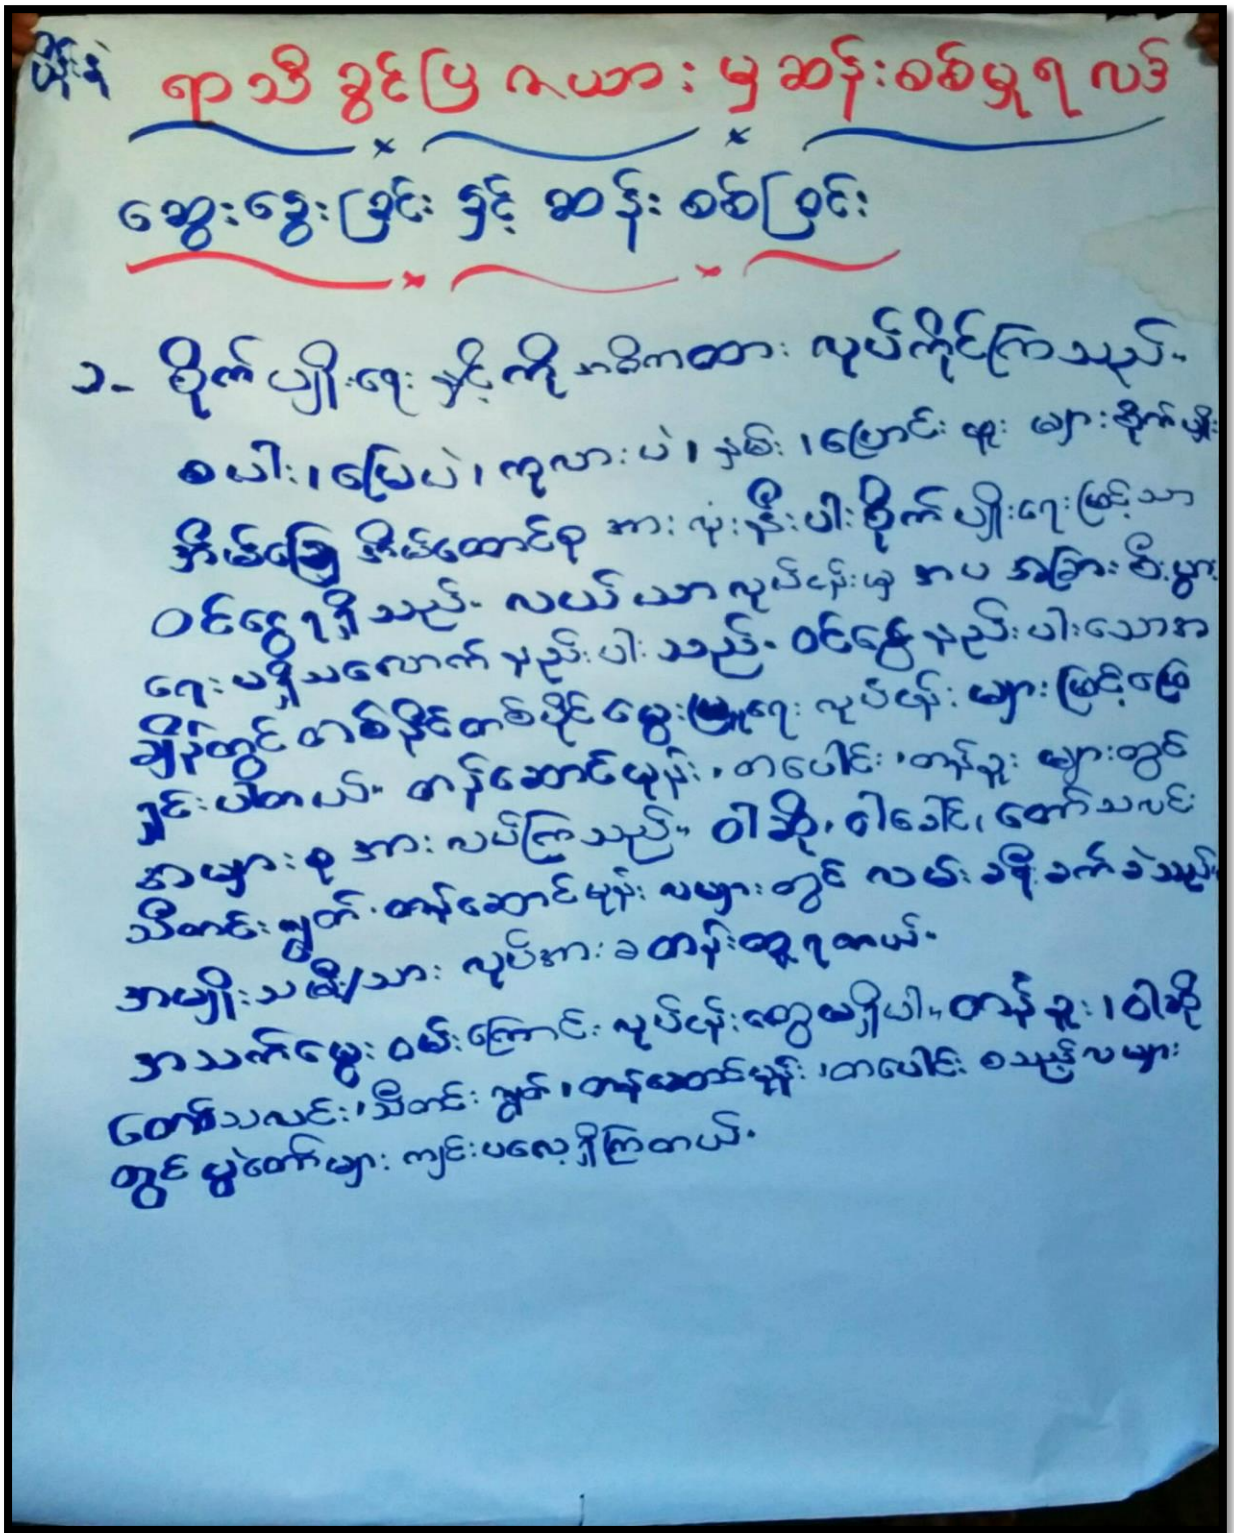 ရာသီခွင်ပြဇယားမှ ဆန်းစစ်မှုရလဒ်
ဆွေးနွေးခြင်း နှင့် ဆန်းစစ်ခြင်း
၁- စိုက်ပျိုးရေး နှင့်ကို အဓိကထား လုပ်ကိုင်ကြသည်။
စပါး၊ မြေပဲ၊ ကုလားပဲ၊ နှမ်း၊ ပြောင်းဖူး များစိုက်ပျိုး
အိမ်ခြေ အိမ်ထောင်စု အားလုံးနီးပါး စိုက်ပျိုးရေးဖြင့်သာ
ဝင်ငွေရရှိသည်။ လယ်ယာလုပ်ငန်းမှ အပ အခြားစီးပွား
ရေးမရှိသလောက်နည်းပါးသည်။ ဝင်ငွေနည်းပါးသောအ
ချိန်တွင် တစ်နိုင်တစ်ပိုင် မွေးမြူရေး လုပ်ငန်းများဖြင့်ဖြေ
ရှင်းပါတယ်။ တန်ဆောင်မုန်း၊ တပေါင်း၊ တန်ခူး များတွင်
အများစု အားလပ်ကြသည်။ ဝါဆို၊ ဝါခေါင်၊ တော်သလင်း
သီတင်းကျွတ်၊ တန်ဆောင်မုန်း လများတွင် လမ်းခရီးခက်ခဲသည်။
အမျိုးသမီး/သား လုပ်အားခ တန်းတူရတယ်။
အသက်မွေး ဝမ်းကြောင်း လုပ်ငန်းတွေမရှိပါ။ တန်ခူး၊ ဝါဆို
တော်သလင်း၊ သီတင်းကျွတ်၊ တန်ဆောင်မုန်း၊ တပေါင်း စသည့်လများ
တွင် ပွဲတော်များ ကျင်းပလေ့ရှိကြတယ်။